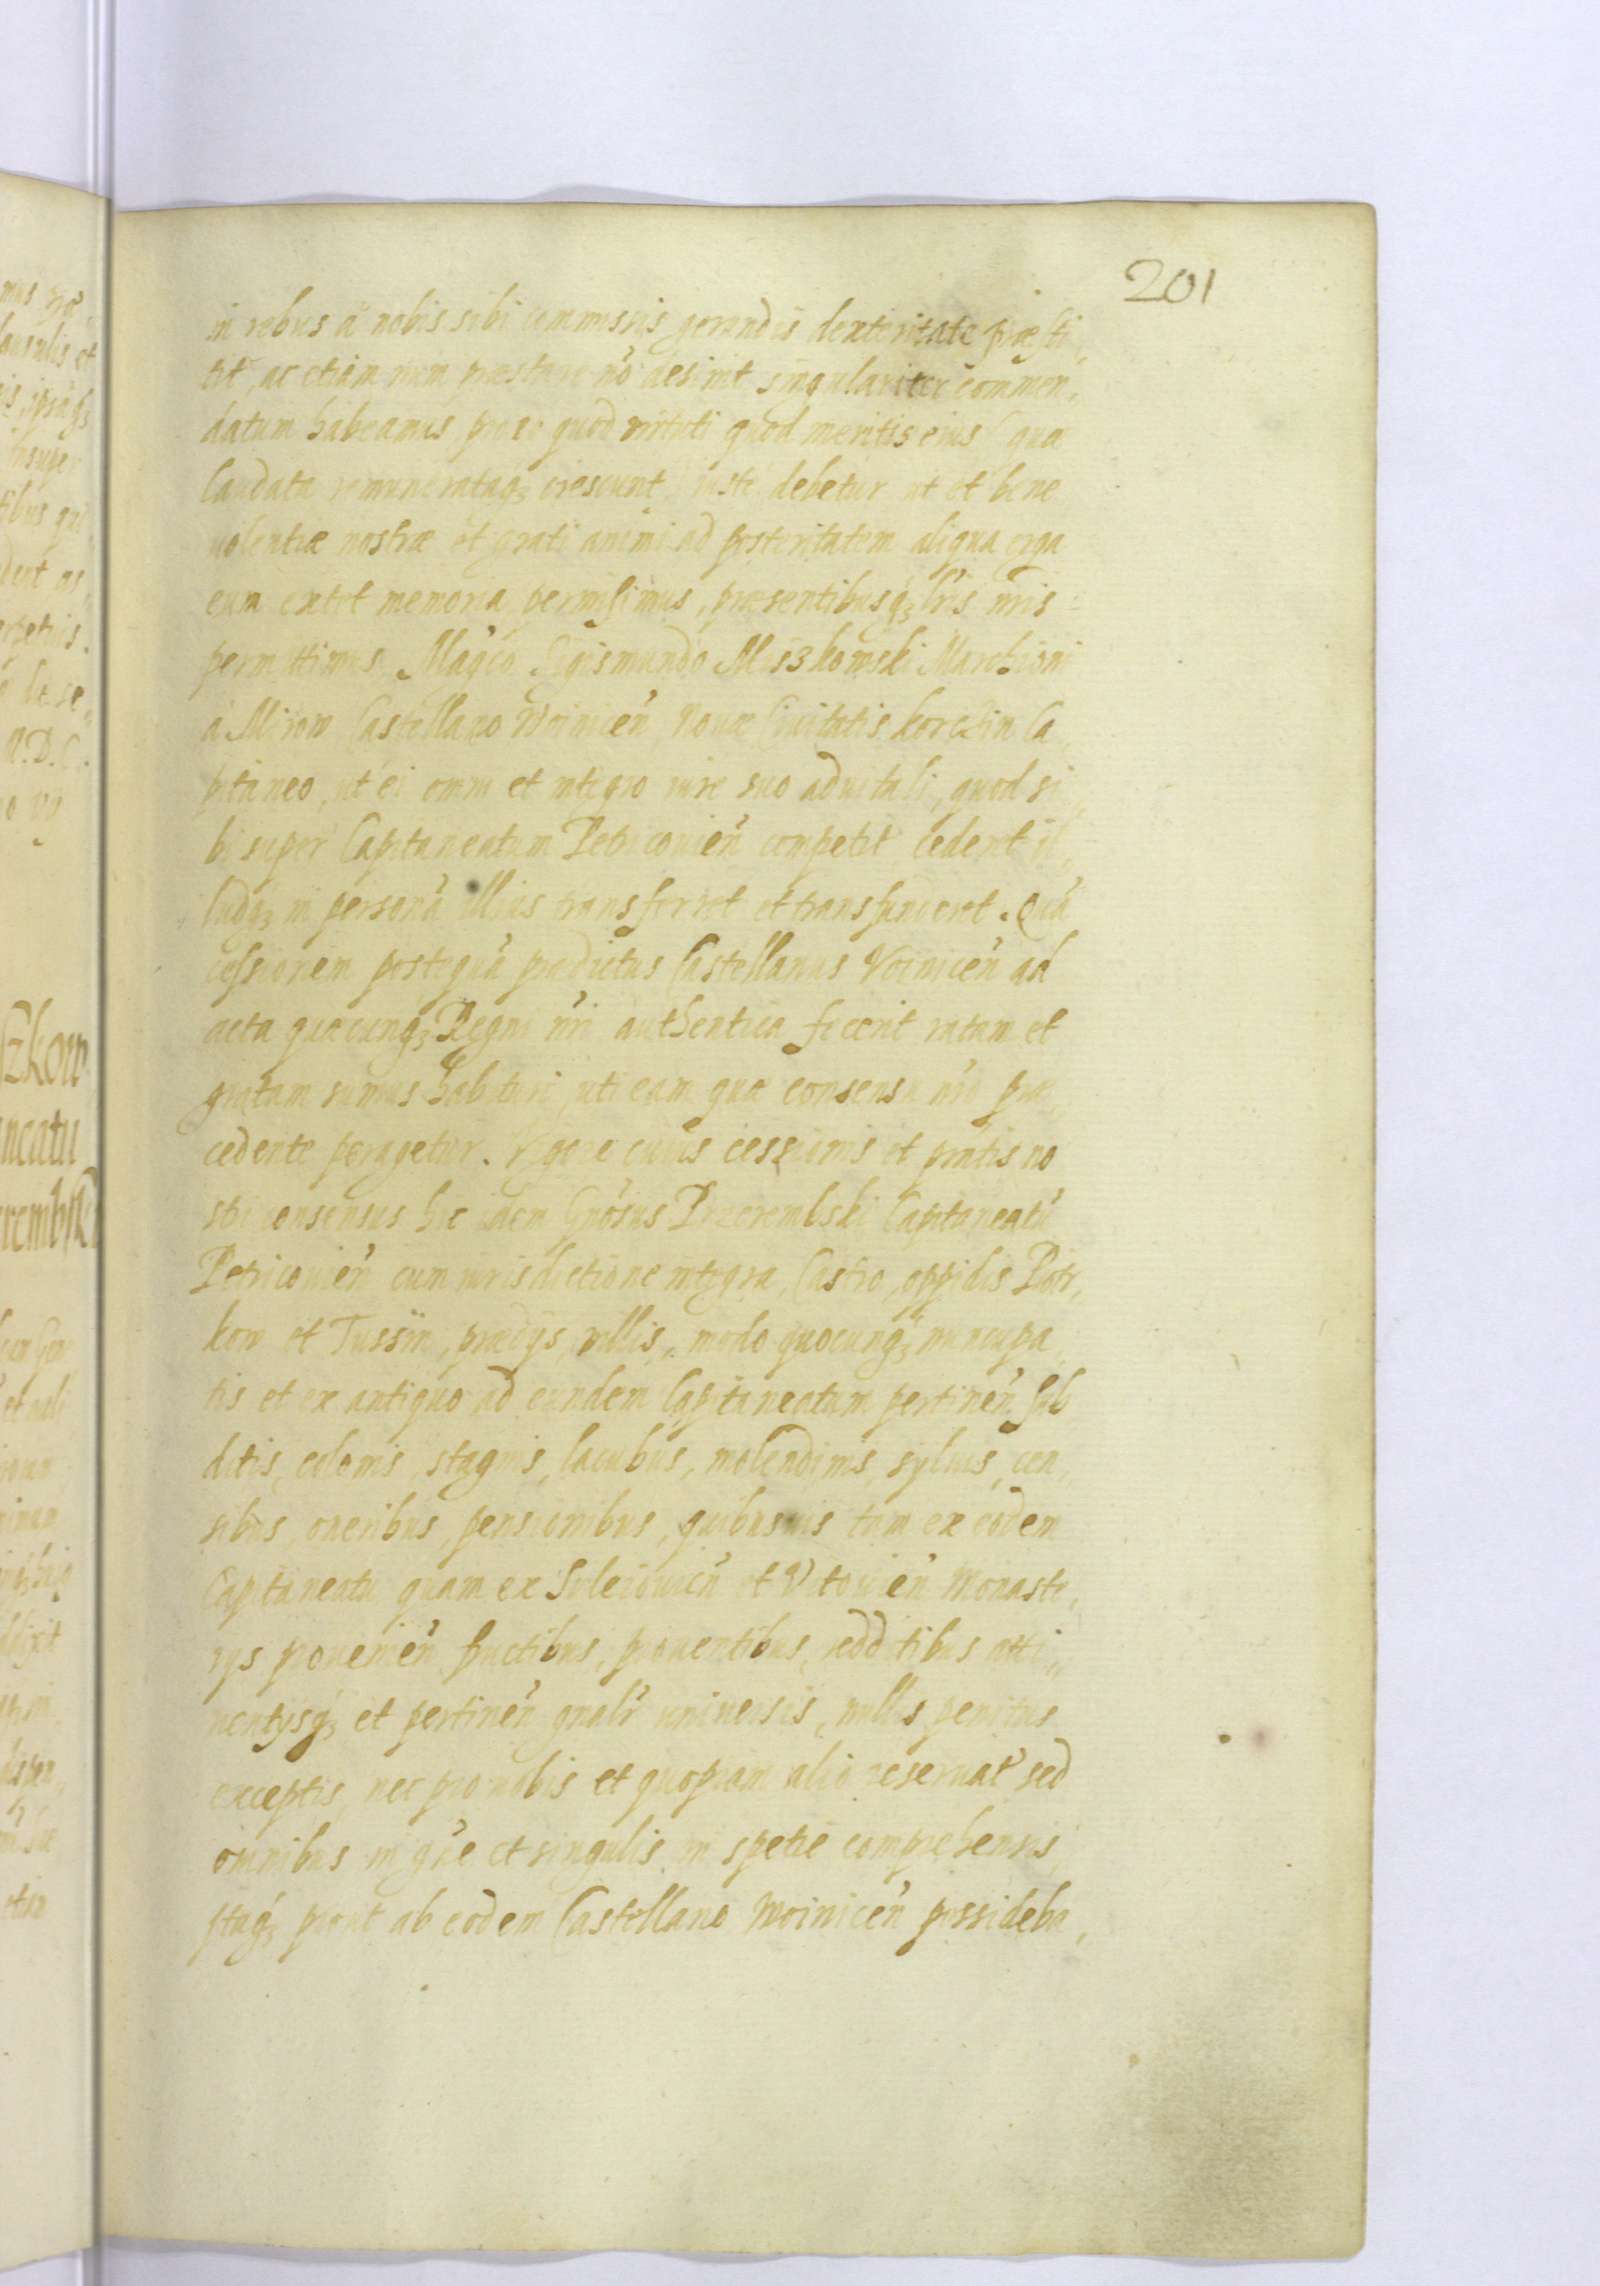 201
in rebus à nobis sibi commissis gerendis dexteritate præsti„
tit, ac etiam num præstare nõ desinit singulariter commen„
datum habeamus, pro eo quod virtuti quod meritis eius (quæ
laudata remunerataq₃ crescunt) iuste debetur ut et bene
uolentiæ nostræ et grati animi ad posteritatem aliqua erga
eum extet memoria permisimus, præsentibusq₃ lr̃is nr̃is
permittimus. Mag̃co Sigismundo Miszkowski Marchioni
à Mirow Castellano Woinicen̄ Nouæ Ciuitatis korczin Ca
pitaneo, ut ei omni et integro iure suo aduitali, quod si„
bi super Capitaneatum Petricouien̄ competit cederet il„
ludq₃ in personã illius transferret et transfunderet. Quã
cessionem postquã prædictus Castellanus Voinicen̄ ad
acta quæcunq₃ Regni nr̃i authentica fecerit ratam et
gratam sumus habituri, uti eam quæ consensu nr̃o præ„
cedente peragetur. Vigore cuius cessionis et præntis no
stri consensus hic idem Gñosus Przerembski Capitaneatũ
Petricouien̄ cum iurisdictione integra, Castro, oppidis Piotr„
kow et Tussin, prædys, villis, modo quocunq₃ nuncupa„
tis et ex antiquo ad eundem Capitaneatum pertinen̄ sub
ditis, colonis, stagnis, lacubus, molendinis, syluis, cen„
sibus, oneribus, pensionibus, quibusuis tam ex eodem
Capitaneatu quam ex Suleiouien̄ et Vitouien̄ Monaste„
rys prouenien̄ fructibus, prouentibus, redditibus atti„
nentysq₃ et pertinen̄ gñalr̃ uniuersis, nullis penitus
exceptis, nec pro nobis et quopiam alio reseruat̃ sed
omnibus in gñe et singulis in spetie comprehensis,
itaq₃ prout ab eodem Castellano Woinicen̄ posside ba„